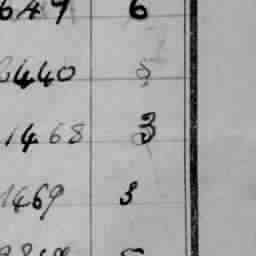 649 6
6440 5
1468 3
1469 3